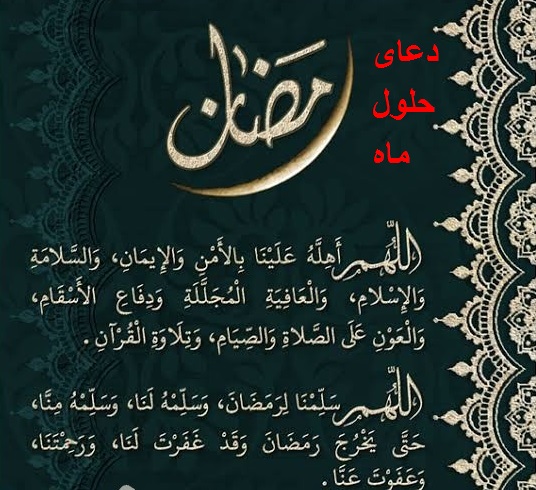 دعای
حلول
ماه
رمضان
اللَّهُمَّ أَهِلَّهُ عَلَيْنَا بِالأَمْنِ وَالإِيمَانِ، وَالسَّلامَةِ
وَالإِسْلامِ، وَالْعَافِيَةِ الْمُجَلَّلَةِ وَدِفَاعِ الأَسْقَامِ،
وَالْعَوْنِ عَلَى الصَّلاةِ وَالصِّيَامِ، وَتِلَاوَةِ الْقُرْآنِ .
اللَّهُمَّ سَلِّمْنَا لِرَمَضَانَ، وَسَلِّمْهُ لَنَا، وَسَلِّمْهُ مِنَّا،
حَتَّى يَخْرُجَ رَمَضَانَ وَقَدْ غَفَرْتَ لَنَا، وَرَحِمْتَنَا،
وَعَفَوْتَ عَنَّا .